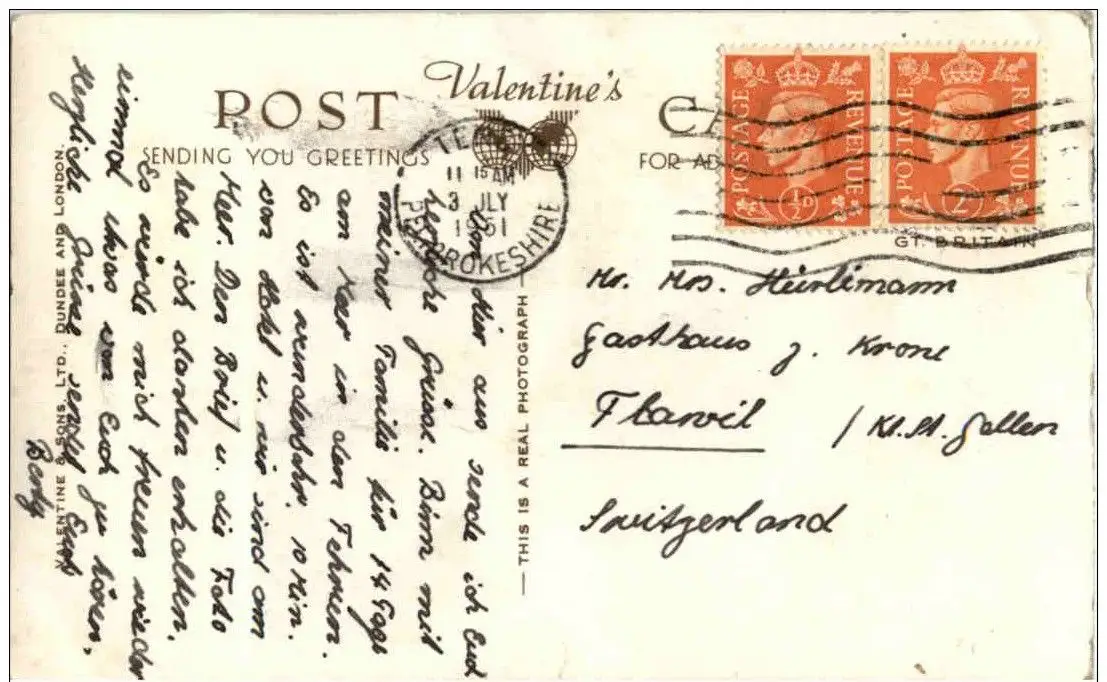 POST
Valentine's
SENDING YOU GREETINGS
FOR AD
11 15 AM
3 JLY
1951
PEMBROKESHIRE
POSTAGE REVENUE
½D
POSTAGE REVENUE
½
GT. BRITAIN
Von Hier aus sende ich Euch
herzliche Grüsse. Binn mit
meiner Familie für 14 Tage
am Meer in den Fehrien.
Es ist wunderbahr. 10 Min.
vom Hotel u. wir sind am
Meer. Den Brief u. die Foto
habe ich danken erhalten.
Es würde mich freuen wieder
einmal etwas von Euch zu hören.
Herzliche Grüsse sendet Euch
Berty
VALENTINE & SONS LTD., DUNDEE AND LONDON.
— THIS IS A REAL PHOTOGRAPH —
Mr. Mrs. Hürlimann
Gasthaus z. Krone
Flawil / Kt. St. Gallen
Switzerland